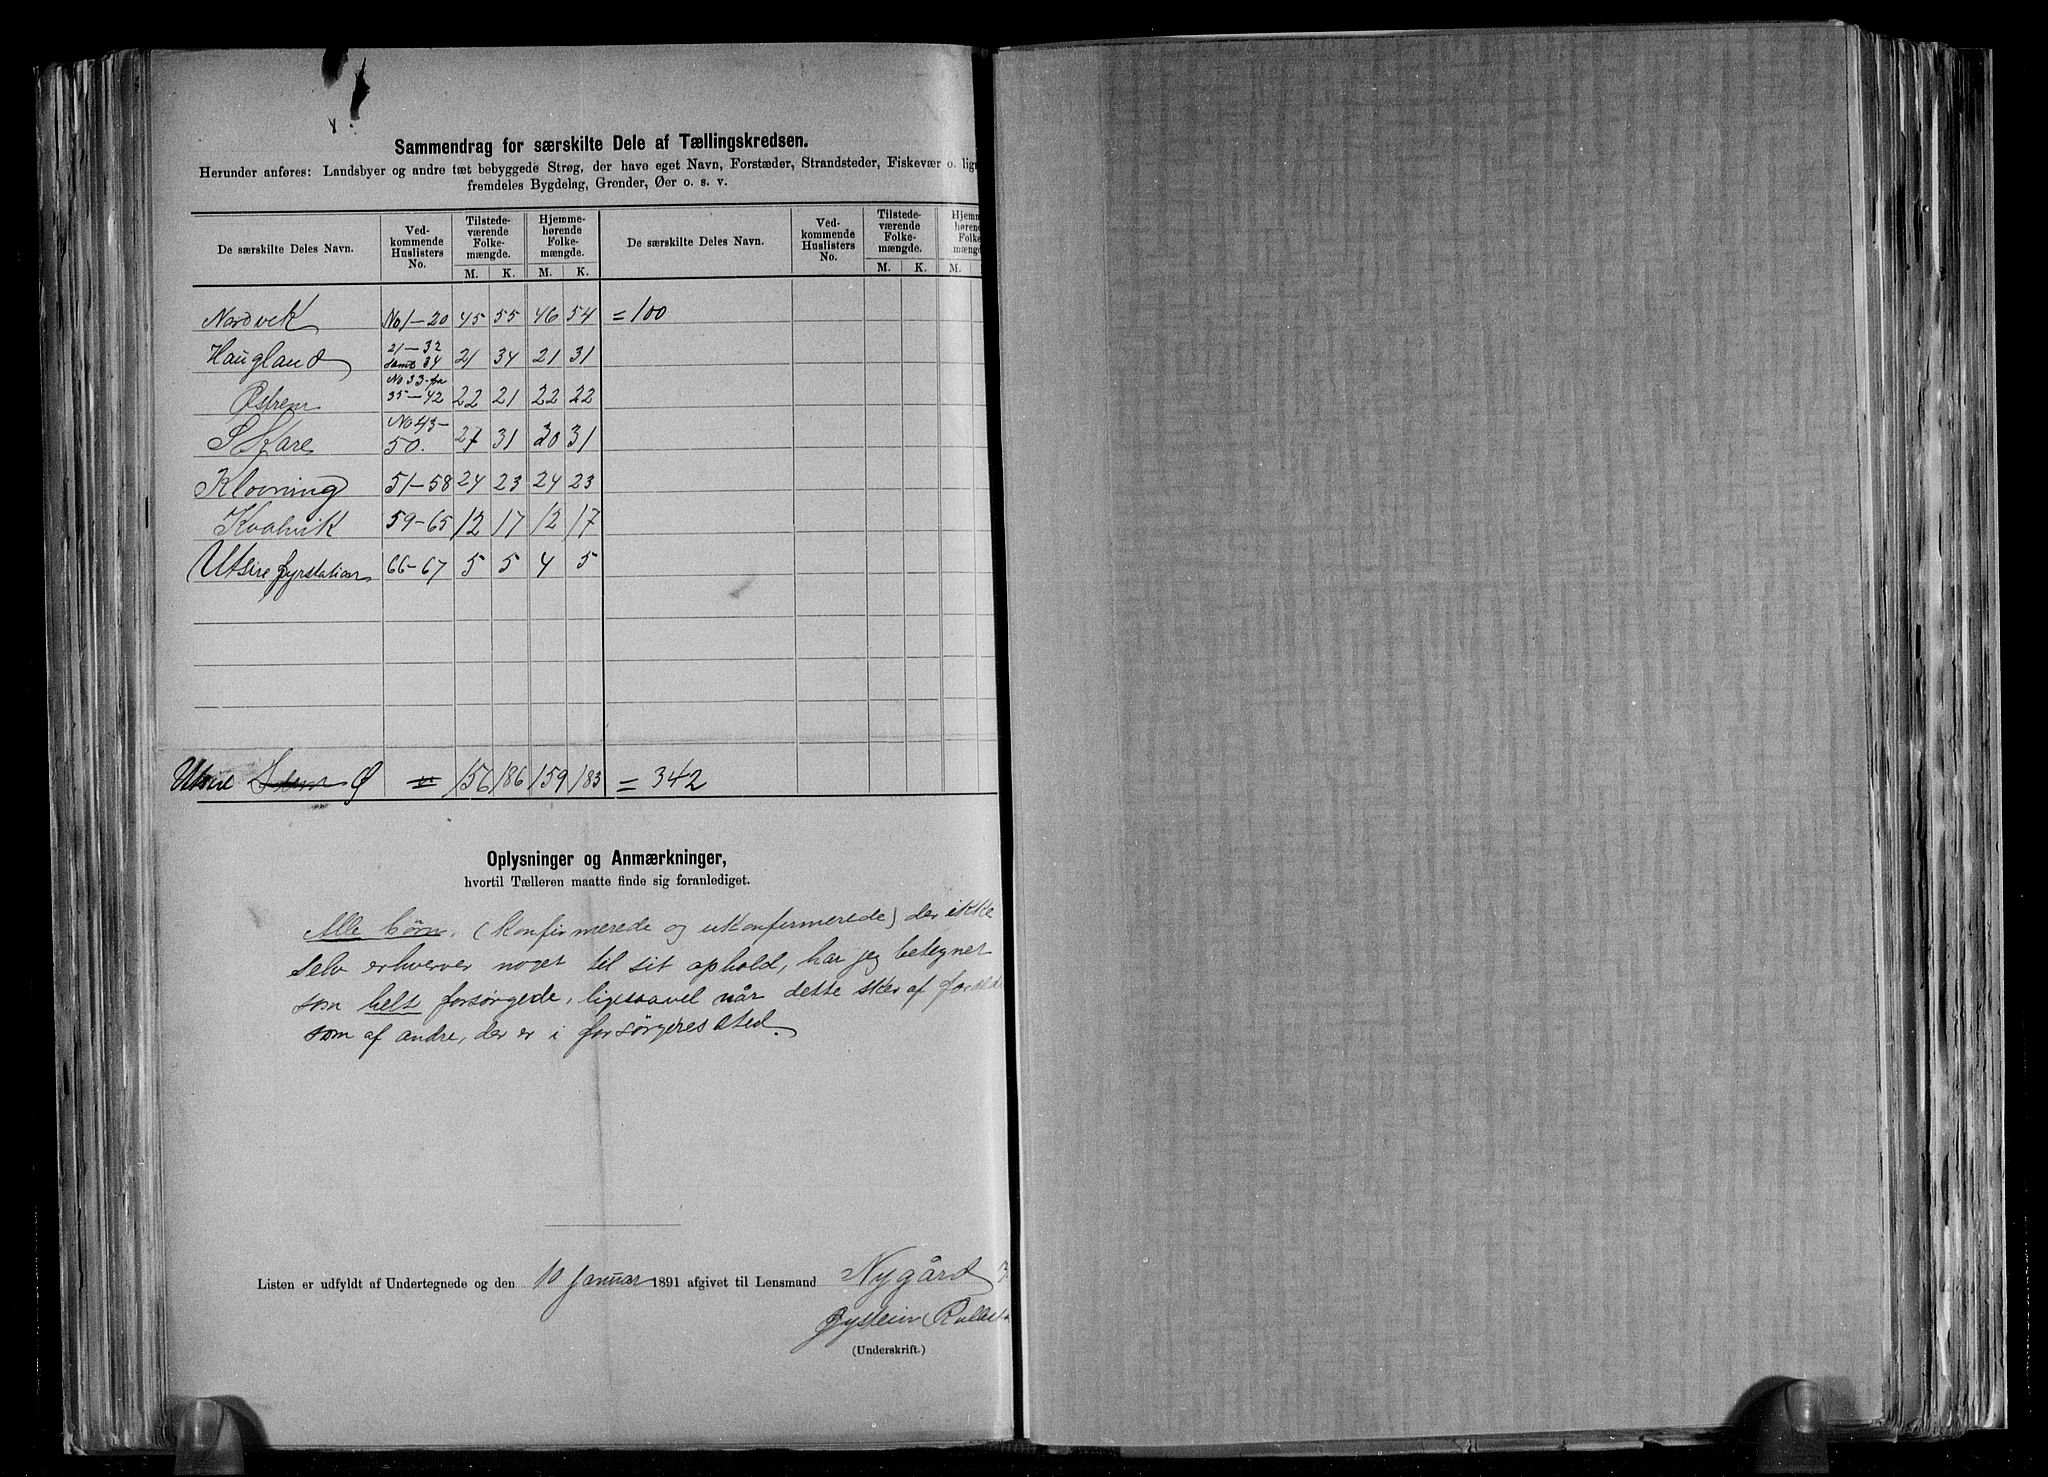 Sammendrag for særskilte Dele af Tællingskredsen.
Herunder anføres: Landsbyer og andre tæt bebyggede Strøg, der have eget Navn, Forstæder, Strandsteder, Fiskevær o. lign
fremdeles Bygdelag, Grender, Øer o. s. v.
De særskilte Deles Navn. Ved-kommende Huslisters No. Tilstede-værende Folke-mængde. Hjemme-hørende Folke-mængde. De særskilte Deles Navn. Ved-kommende Huslisters No. Tilstede-værende Folke-mængde. Hjemm hørend Folke mængde
M. K. M. K. M. K. M.
Nordvik No 1-20 45 55 46 54 = 100
Haugland 21-32 samt 34 21 34 21 31
Østrem No 33-fra 35-42 22 21 22 22
Skare No 43-50. 27 31 30 31
Klovning 51-58 24 23 24 23
Kvalvik 59-65 12 17 12 17
Utsire fyrstation 66-67 5 5 4 5
Utsire Ø 156 186 159 183 = 342
Oplysninger og Anmærkninger,
hvortil Tælleren maatte finde sig foranlediget.
Alle børn, (konfirmerede og ukonfirmerede) der ikke
selv erhverver noget til sit ophold, har jeg betegnet
som helt forsørgede, ligesaavel når dette sker af
som af andre, der er i forsørgeres sted.
Listen er udfyldt af Undertegnede og den 10 Januar 1891 afgivet til Lensmand Nygård
Øystein
(Underskrift.)